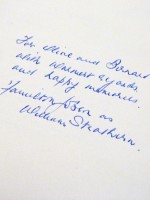 For Aline and Bernard
with warmest regards
and happy memories.
Hamilton Dean as
William Strathurn